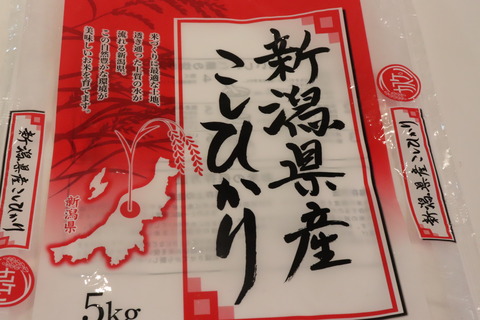 米づくりに最適な土地、
透き通った上質の水が
流れる新潟県。
この自然豊かな環境が
美味しいお米を育てます。
新潟県産
こしひかり
新潟県
5kg
新潟県産こしひかり
新潟県産こしひかり